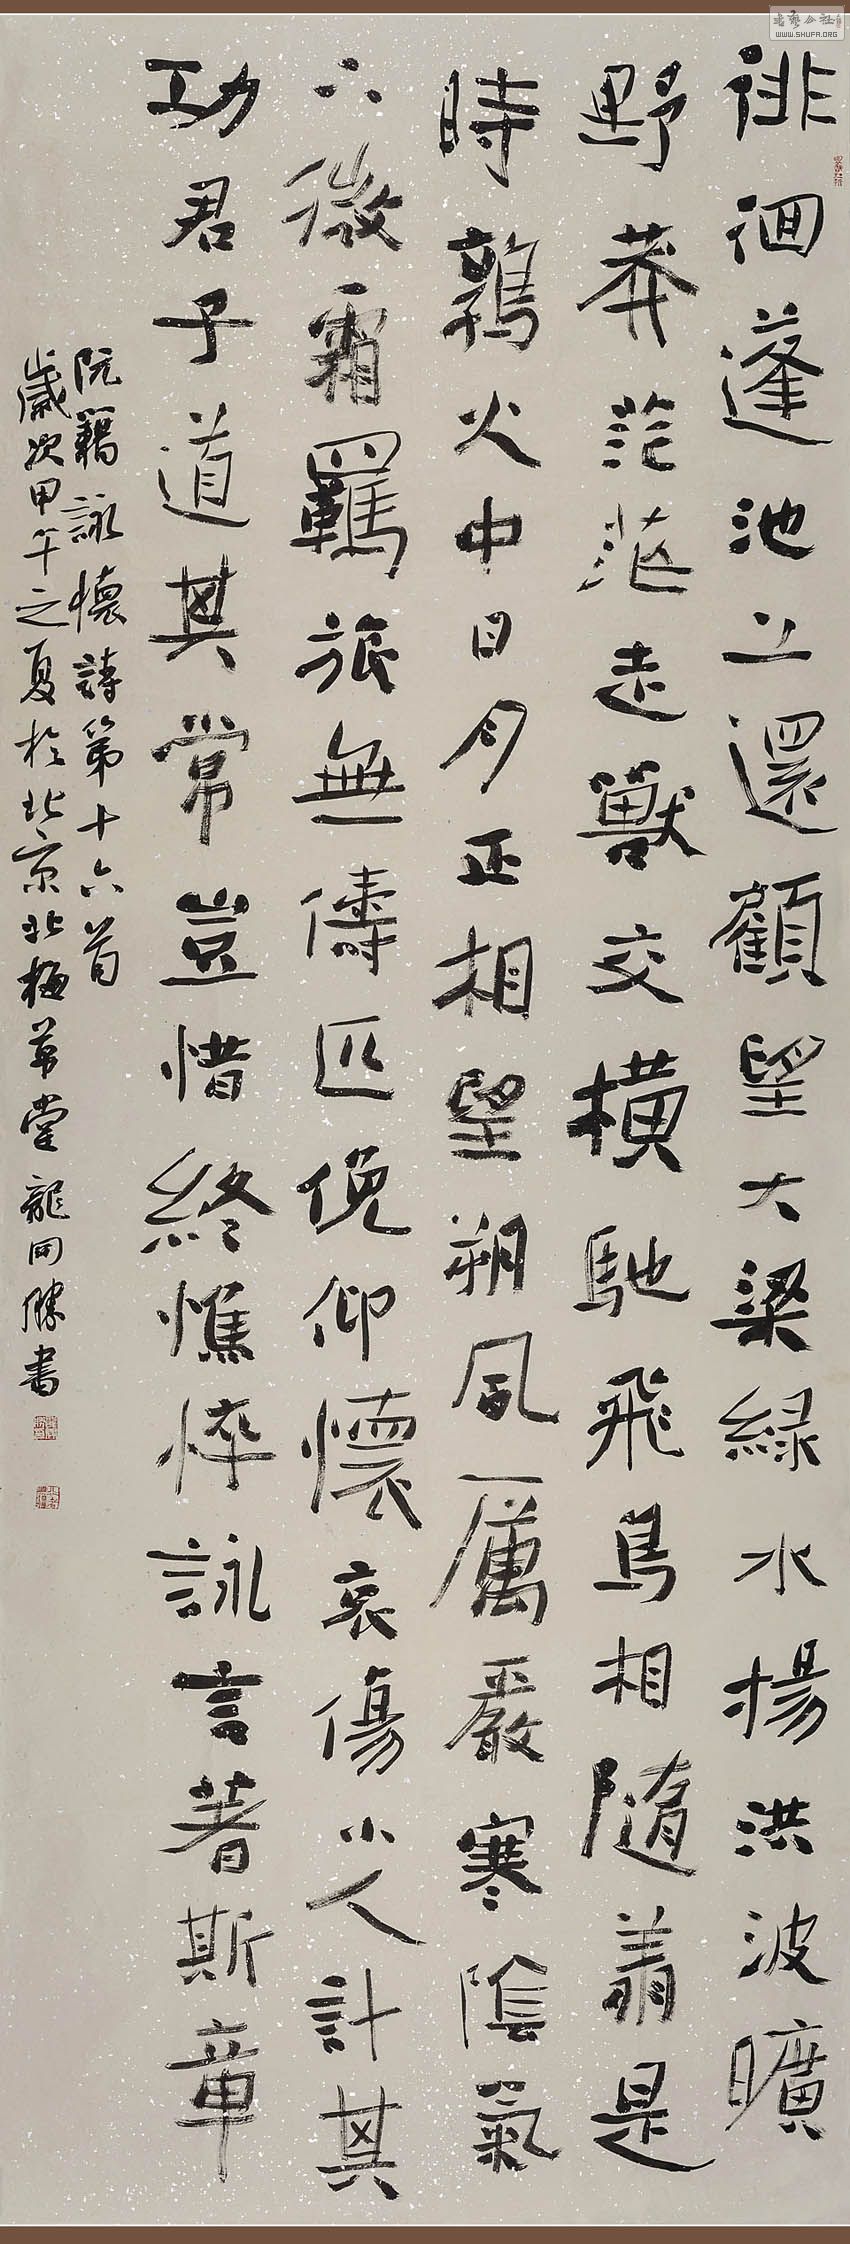 徘徊蓬池上還顧望大梁綠水揚洪波曠
野莽茫茫走獸交橫馳飛鳥相隨羣是
時鶉火中日月正相望朔風厲嚴寒陰氣
下微霜羈旅無儔匹俛仰懷哀傷小人計其
功君子道其常豈惜終憔悴詠言著斯章
阮籍詠懷詩第十六首
歲次甲午之夏於北京北梅草堂龍同勝書
WWW.SHUFA.ORG